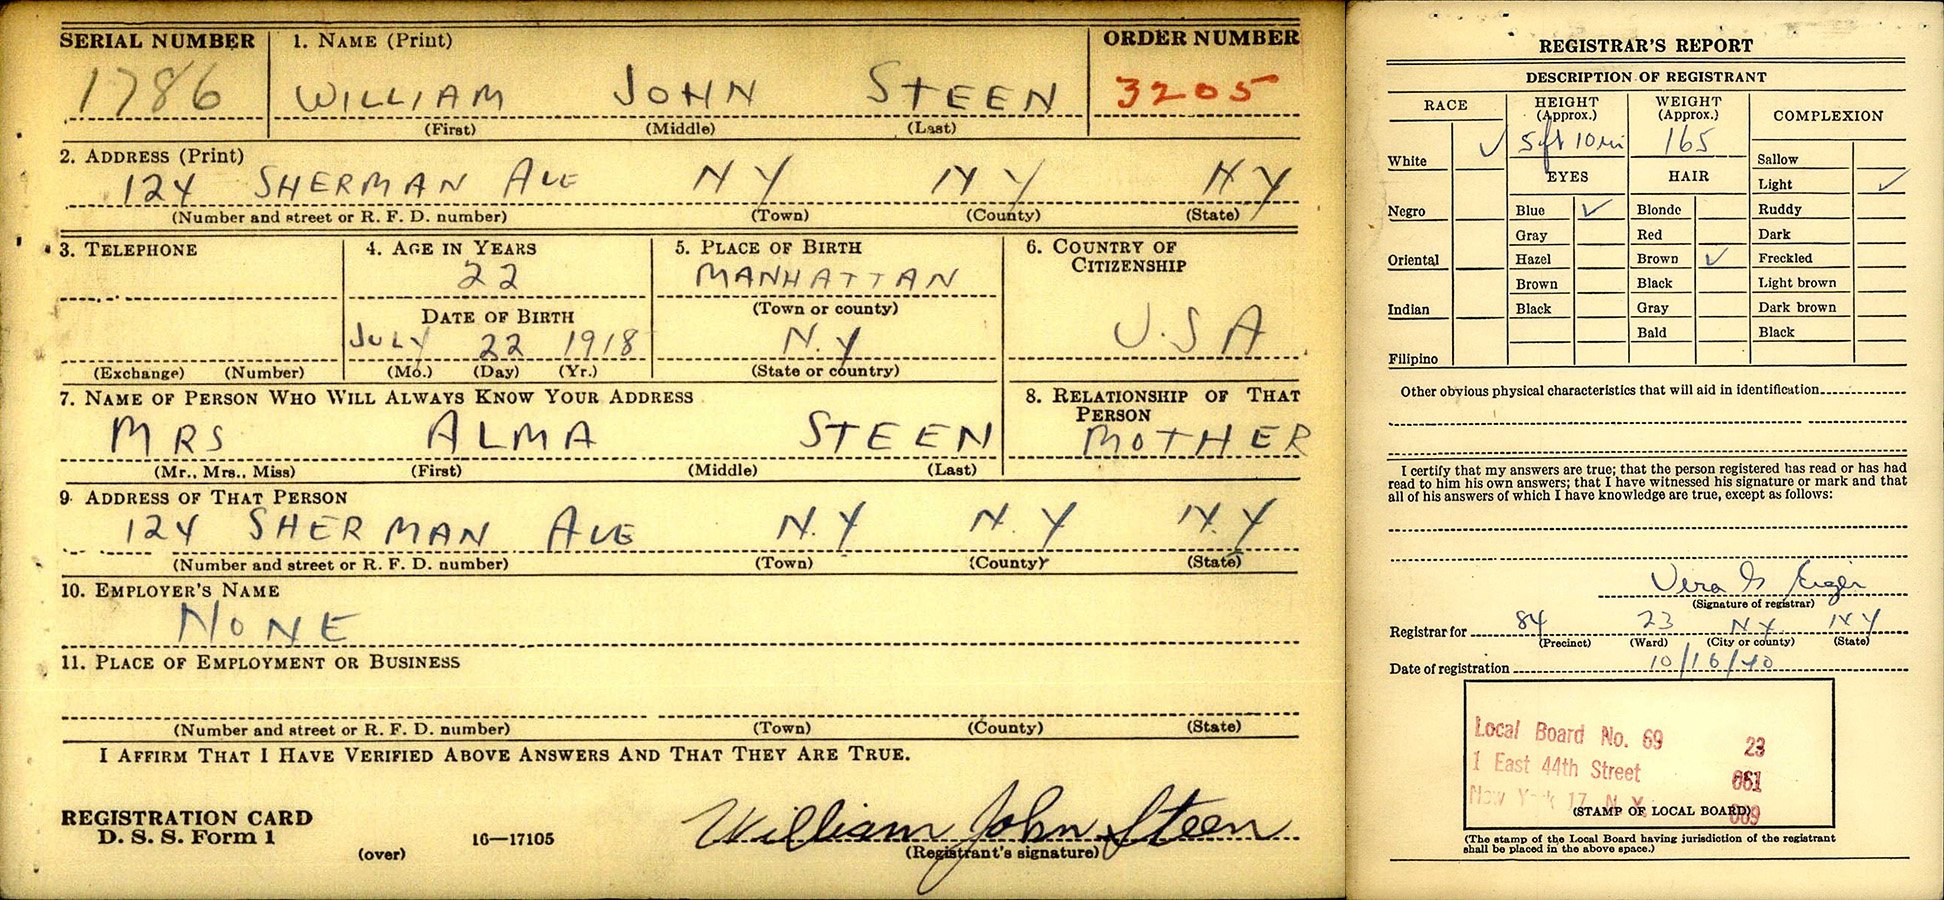 SERIAL NUMBER 1. NAME (Print) ORDER NUMBER
1786 WILLIAM JOHN STEEN 3205
(First) (Middle) (Last)
2. ADDRESS (Print)
124 SHERMAN AVE N Y N Y N Y
(Number and street or R. F. D. number) (Town) (County) (State)
3. TELEPHONE 4. AGE IN YEARS 5. PLACE OF BIRTH 6. COUNTRY OF
CITIZENSHIP
22 MANHATTAN
(Town or county)
DATE OF BIRTH
JULY 22 1918 N.Y U.S A
(Exchange) (Number) (Mo.) (Day) (Yr.) (State or country)
7. NAME OF PERSON WHO WILL ALWAYS KNOW YOUR ADDRESS 8. RELATIONSHIP OF THAT
PERSON
MRS ALMA STEEN MOTHER
(Mr., Mrs., Miss) (First) (Middle) (Last)
9. ADDRESS OF THAT PERSON
124 SHERMAN AVE N.Y N.Y N.Y
(Number and street or R. F. D. number) (Town) (County) (State)
10. EMPLOYER'S NAME
NONE
11. PLACE OF EMPLOYMENT OR BUSINESS
(Number and street or R. F. D. number) (Town) (County) (State)
I AFFIRM THAT I HAVE VERIFIED ABOVE ANSWERS AND THAT THEY ARE TRUE.
REGISTRATION CARD
D. S. S. Form 1 William John Steen
(over) 16—17105 (Registrant's signature)
REGISTRAR'S REPORT
DESCRIPTION OF REGISTRANT
RACE HEIGHT (Approx.) WEIGHT (Approx.) COMPLEXION
White ✓ 5 ft 10 in 165 Sallow
EYES HAIR Light ✓
Negro Blue ✓ Blonde Ruddy
Gray Red Dark
Oriental Hazel Brown ✓ Freckled
Brown Black Light brown
Indian Black Gray Dark brown
Bald Black
Filipino
Other obvious physical characteristics that will aid in identification
I certify that my answers are true; that the person registered has read or has had
read to him his own answers; that I have witnessed his signature or mark and that
all of his answers of which I have knowledge are true, except as follows:
Vera G
(Signature of registrar)
Registrar for 84 23 N Y N Y
(Precinct) (Ward) (City or county) (State)
Date of registration 10/16/40
Local Board No. 69 23
1 East 44th Street 061
New York 17, N. Y. 009
(STAMP OF LOCAL BOARD)
(The stamp of the Local Board having jurisdiction of the registrant
shall be placed in the above space.)